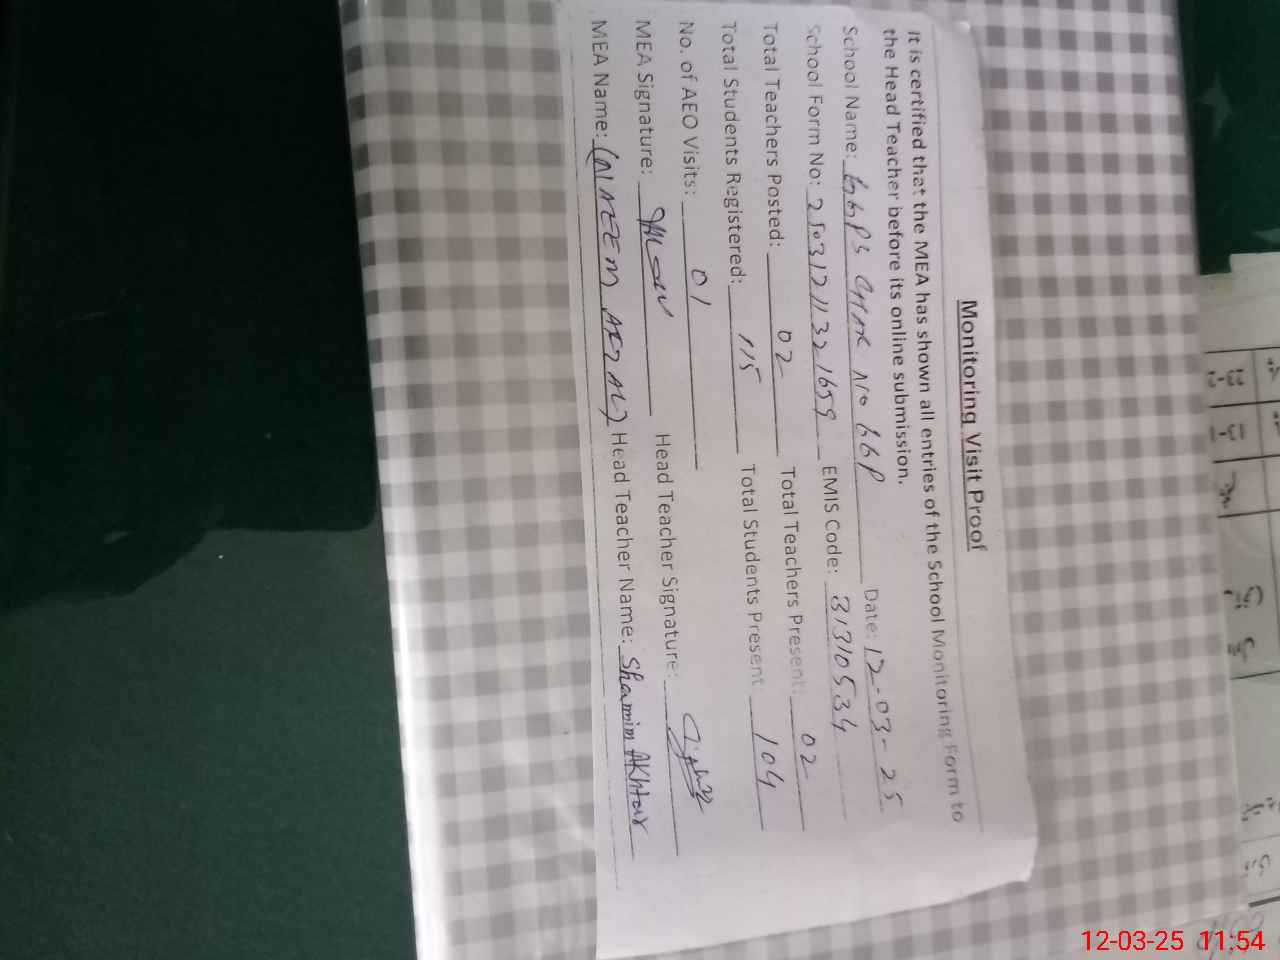 Monitoring Visit Proof
It is certified that the MEA has shown all entries of the School Monitoring Form to
the Head Teacher before its online submission.
School Name: GGPS NO GGP Date: 12-03-25
School Form No: 25031211321659 EMIS Code: 31310534
Total Teachers Posted: 02 Total Teachers Present: 02
Total Students Registered: 115 Total Students Present: 104
No. of AEO Visits: 01
MEA Signature: Head Teacher Signature:
MEA Name: (NAEEM AFZAL) Head Teacher Name: Shamim AKhtar
12-03-25 11:54